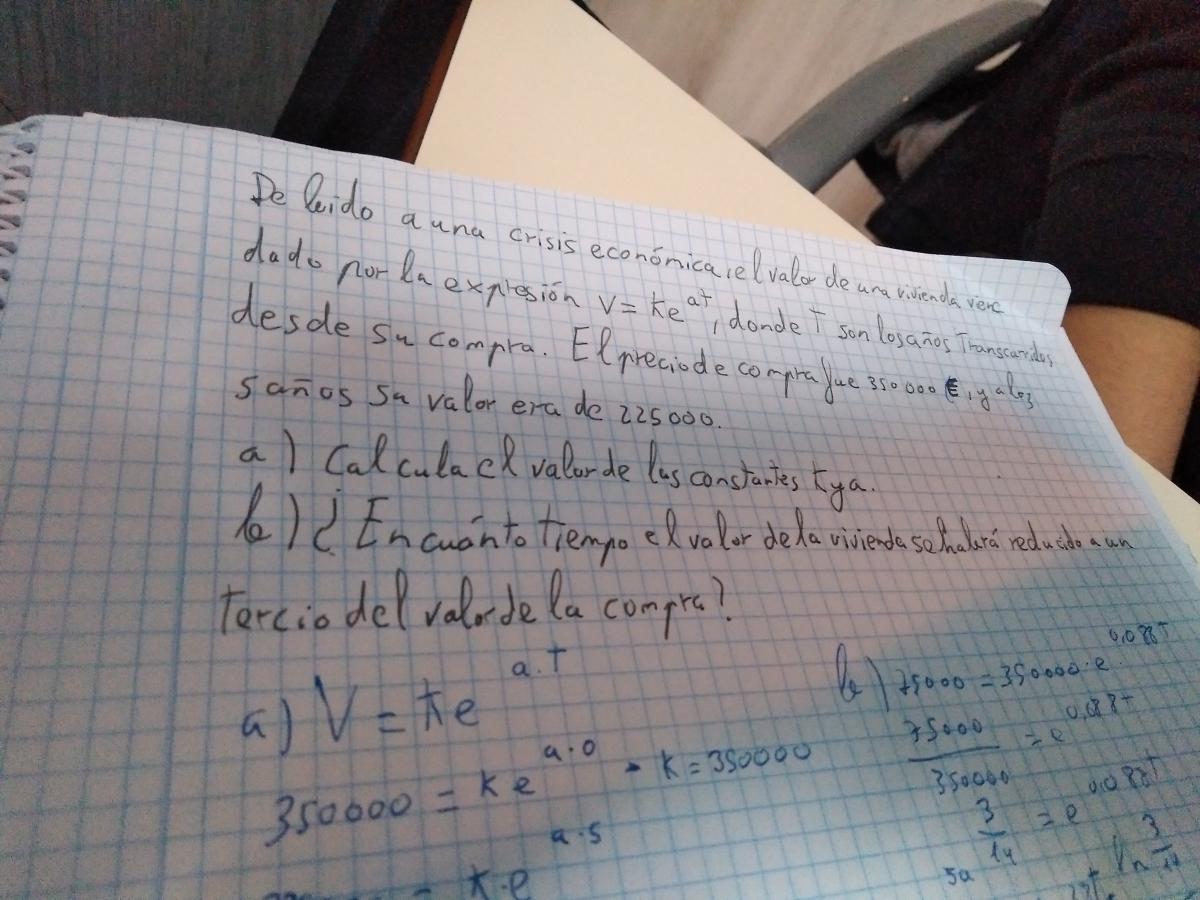 De leido a una crisis económica, el valor de una vivienda viene
dado por la expresión V = Ke^at, donde t son los años Transcurridos
desde su compra. El precio de compra fue 350 000 €, y a los
5 años su valor era de 225000.
a) Calcula el valor de las constantes K y a.
b) ¿En cuánto tiempo el valor de la vivienda se habrá reducido a un
Tercio del valor de la compra?
a) V = Ke^a.t
350000 = Ke^a·0 - K = 350000
a·5
= K·e
b) 75000 = 350000·e^0,088t
75000/350000 = e^0,088t
3/14 = e^0,088t
ln 3/14